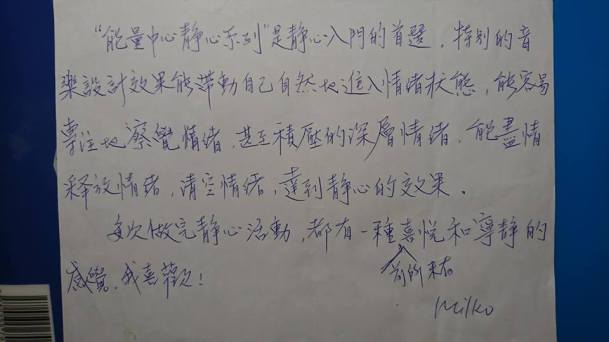 “能量中心靜心系列”是靜心入門的首選，特別的音
樂設計效果能帶動自己自然地進入情緒狀態，能容易
專注地察覺情緒，甚至積壓的深層情緒，能盡情
釋放情緒，清空情緒，達到靜心的效果。
每次做完靜心活動，都有一種喜悅和寧靜的
前所未有
感覺，我喜歡！
Milko